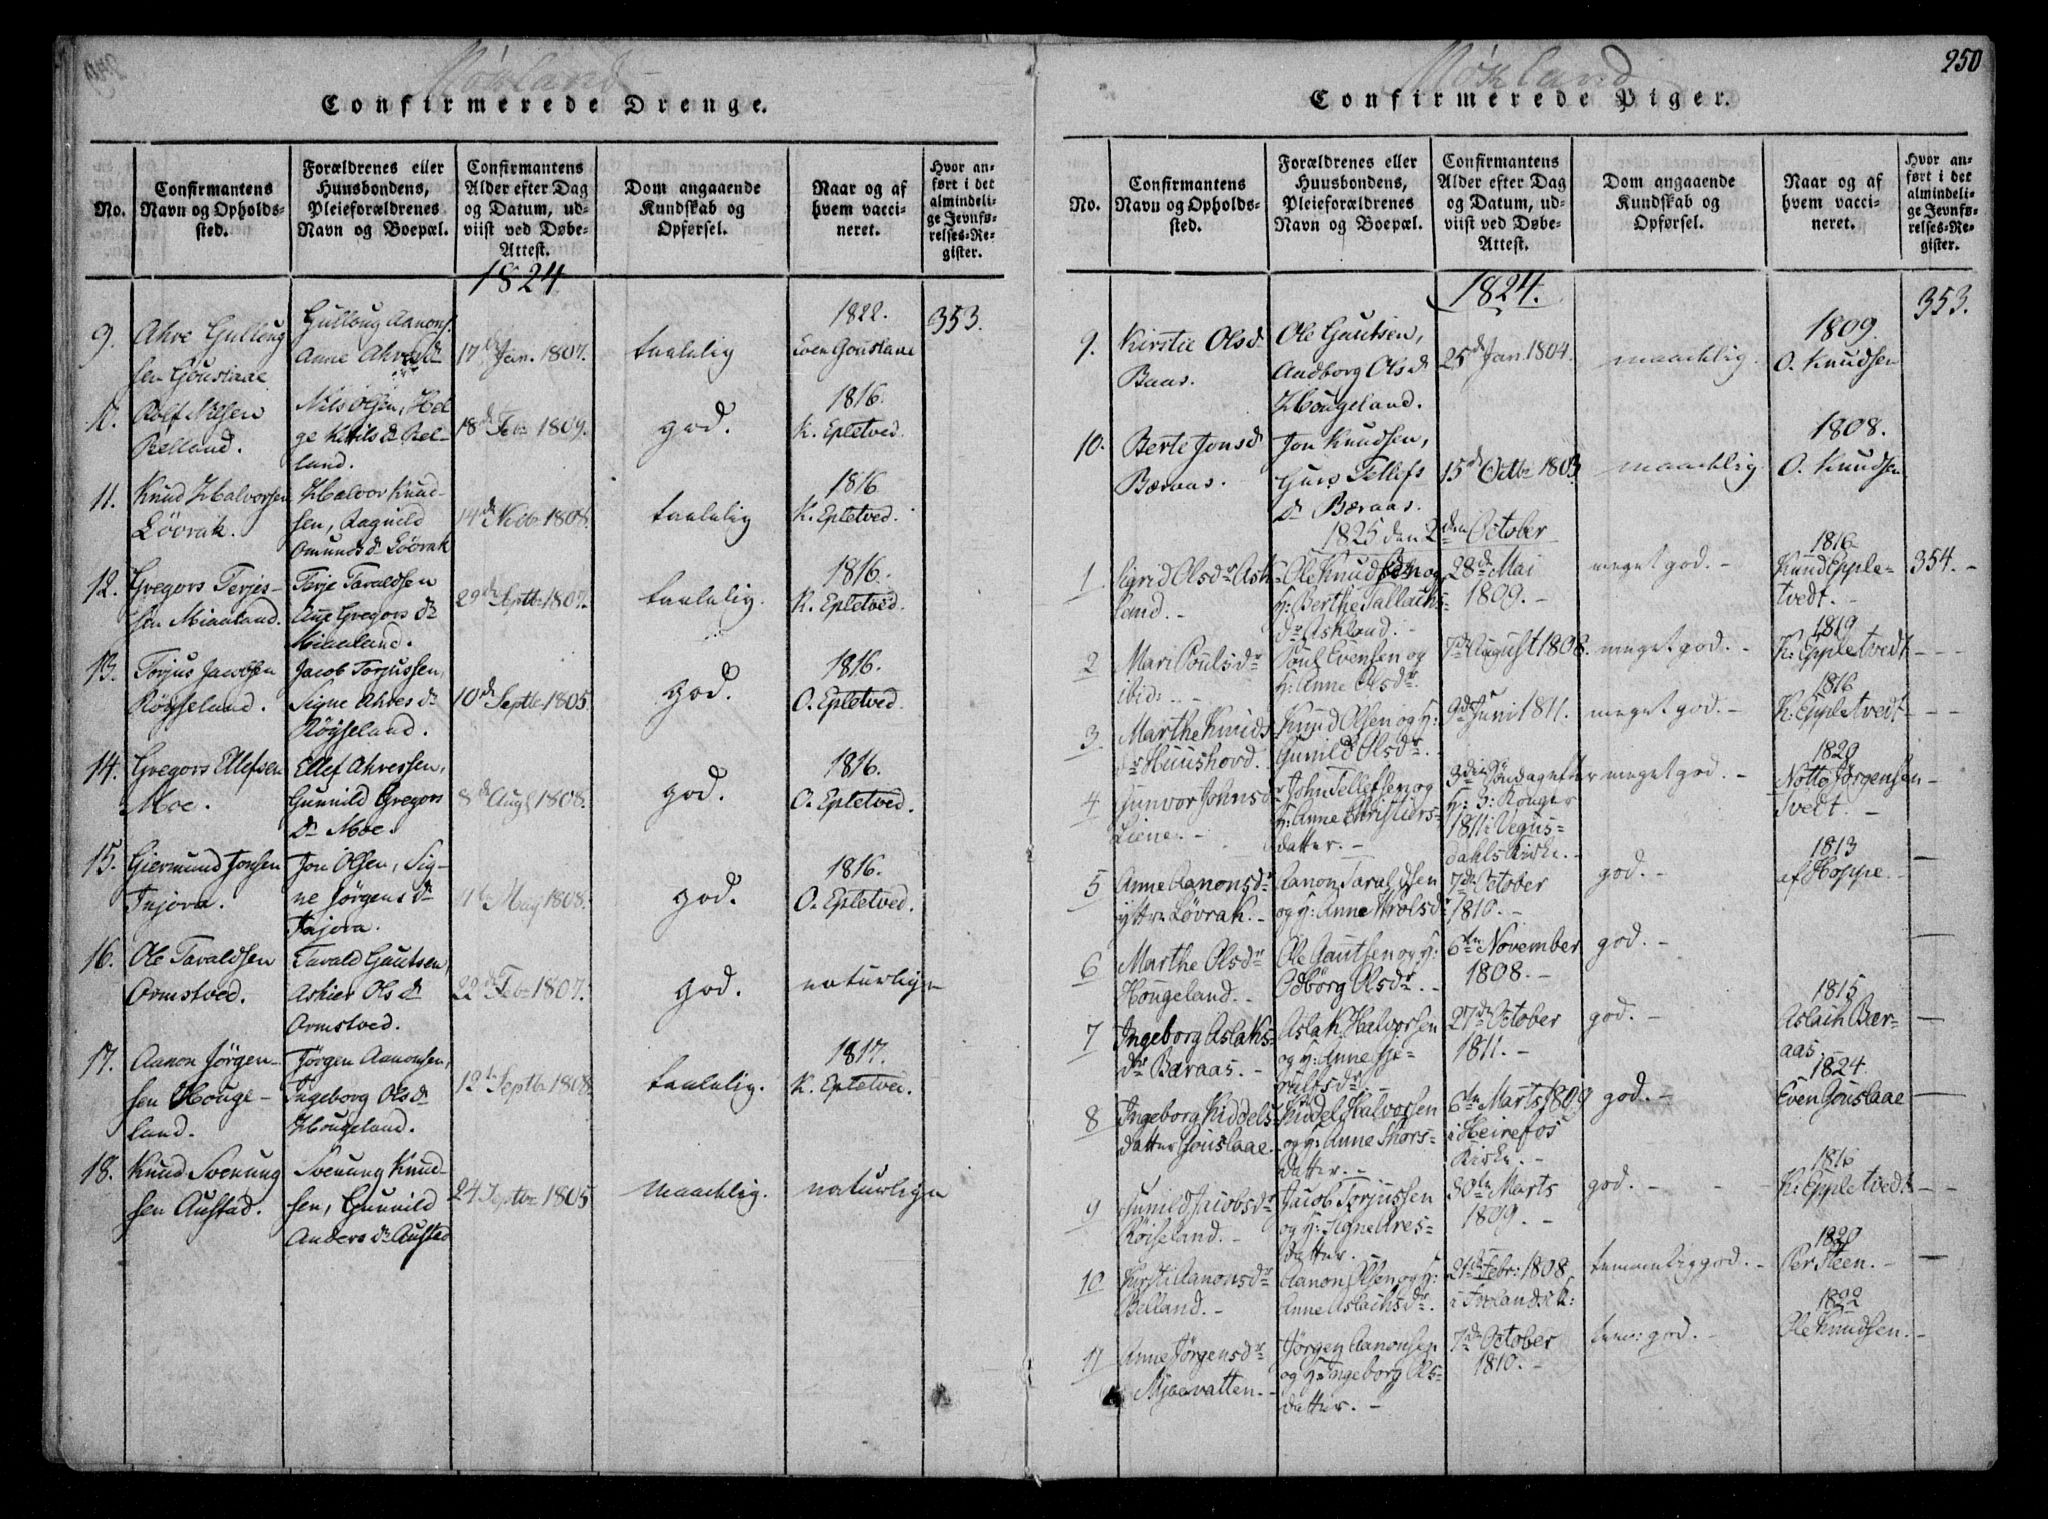 250
Møkland
Confirmerede Drenge.
No.
Confirmantens
Navn og Opholds-
sted.
Forældrenes eller
Huusbondens,
Pleieforældrenes
Navn og Boepæl.
Confirmantens
Alder efter Dag
og Datum, ud-
viist ved Døbe-
Attest.
Dom angaaende
Kundskab og
Opførsel.
Naar og af
hvem vacci-
neret.
Hvor an-
ført i det
almindeli-
ge Jevnfø-
relses-Re-
gister.
1824
9. Ahre Gulloug
sen Gouslaae
Gulloug Aanons.
Anne Ahresdr
17de Jan. 1807.
taalelig
1822.
Even Gouslaae
353.
10. Rolf Nilsen
Belland.
Nils Olsen, Hel
ge Ketilsdr Bel-
land.
18de Febr 1809.
god.
1816.
K. Epletved.
11. Knud Halvorsen
Løvrak.
Halvor Knud-
sen, Ragnild
Omundsdr Løvrak
14de Novbr 1808.
taalelig
1816
K. Epletved.
12. Gregors Terjes-
sen Mianland.
Terje Taraldsen
Anne Gregorsdr
Mianland.
29de Septbr 1807.
taalelig.
1816.
K. Epletved.
13. Torjus Jacobsen
Røyseland.
Jacob Torjussen,
Signe Ahresdr
Røyseland.
10de Septbr 1805.
god.
1816.
O. Epletved.
14. Gregors Ellefsen
Moe.
Ellef Ahressen,
Gunnild Gregors
dr Moe.
8de Augs 1808.
god.
1816.
O. Epletved.
15. Giermund Jonsen
Injora.
Jon Olsen, Sig-
ne Jørgensdr
Injora.
May 1808.
god.
1816.
O. Epletved.
16. Ole Taraldsen
Ormstved.
Tarald Gautsen,
Askier Olsdr
Ormstved.
22de Febr 1807.
god.
naturlig
17. Aanon Jørgen-
sen Houge-
land.
Jørgen Aanonsen,
Ingeborg Olsdr
Hougeland.
12te Septbr 1808.
taalelig.
1817.
K. Epletved.
18. Knud Svenung
sen Austad.
Svenung Knud-
sen, Gunnild
Andersdr Austad
24 Septbr 1805
Maadelig.
naturlig
Møkland
Confirmerede Piger.
No.
Confirmantens
Navn og Opholds-
sted.
Forældrenes eller
Huusbondens,
Pleieforældrenes
Navn og Boepæl.
Confirmantens
Alder efter Dag
og Datum, ud-
viist ved Døbe-
Attest.
Dom angaaende
Kundskab og
Opførsel.
Naar og af
hvem vacci-
neret.
Hvor an-
ført i det
almindeli-
ge Jevnfø-
relses-Re-
gister.
1824.
353.
9. Kirstie Olsd.
Baas.
Ole Gautsen,
Andborg Olsdr
Hougeland.
25de Jan. 1804.
maadelig.
1809.
O. Knudsen
10. Berte Jonsdr
Bæraas.
Jon Knudsen,
Guro Tellefs
dr Bæraas.
15de Octbr 1803
maadelig.
1808.
O. Knudsen
1825 den 2den October
1 Sigrid Olsdr Ask-
land. -
Ole Knudsen og
H: Berthe Tallachs-
dr Askland. -
28de Mai
1809. -
meget god. -
1816
Knud Epple-
tvedt. -
354. -
2 Mari Poulsdr
ibid: -
Poul Evensen og
H: Anne Olsdr.
7de August 1808.
meget god. -
1819
K: Eppletvedt
3 Marthe Knuds
dr Huushovd.
Knud Olsen og H:
Gunild Olsdr. -
9de Juni 1811.
meget god. -
1816
K: Eppletvedt
4 Gunvor Johnsdr
Liene. -
John Tellefsen og
H: Anne Christiers-
datter. -
3die Søndag efter
H: 3: Konger
1811 i Vegus-
dahls Kirke. -
meget god. -
1820
Notto Jørgensen
Tvedt. -
5 Anne Aanonsdr
ytre Løvrak. -
Aanon Taraldsen
og H: Anne Aroldsdr
7de October
1810. -
god. -
1813
af Hoppe. -
6 Marthe Olsdr
Hougeland. -
Ole Gautsen og H:
Odbørg Olsdr. -
6te November
1808. -
god. -
7 Ingeborg Aslaks-
dr Bæraas. -
Aslak Halvorsen
og H: Anne Gje-
rulfsdr. -
27de October
1811. -
god. -
1815
Aslach Bær-
aas.
8 Ingeborg Kiddels-
datter Gouslaae.
Kiddel Halvorsen
og H: Anne Thors-
datter. -
6te Marts 1809
i Heirefos
Kirke. -
god. -
1824
Even Gouslaae
9 Gunild Jacobsdr
Røiseland. -
Jacob Torjussen
og H: Signe Ares-
datter. -
30te Marts
1809. -
god. -
1816
K: Eppletvedt
10 Kirsti Aanonsdr
Belland. -
Aanon Olsen og H:
Anne Aslachsdr.
21de Febr: 1808
i Ivelands K:
temmelig god. -
1820
Per Steen. -
11 Anne Jørgensdr
Mjaavatten. -
Jørgen Aanonsen
og H: Ingeborg Ols-
datter. -
7de October
1810. -
tem: god. -
1822
Ole Knudsen. -